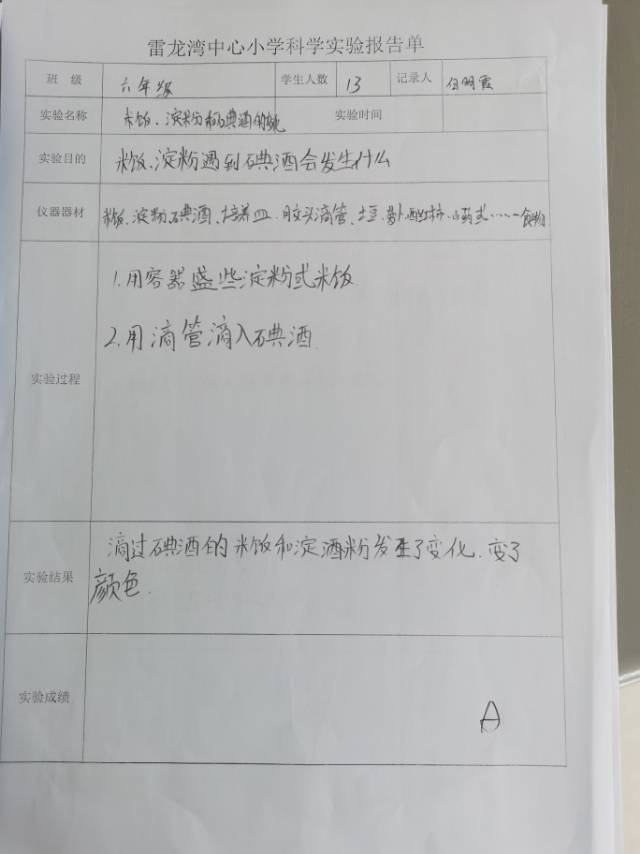 雷龙湾中心小学科学实验报告单
班 级 六年级 学生人数 13 记录人
实验名称 米饭、淀粉和碘酒的 实验时间
实验目的 米饭、淀粉遇到碘酒会发生什么
仪器器材 米饭、淀粉、碘酒、培养皿、胶头滴管、土豆、萝卜
1.用容器盛些淀粉或米饭
2.用滴管滴入碘酒.
实验过程
滴过碘酒的米饭和淀酒粉发生了变化.变了
实验结果
颜色.
实验成绩
A